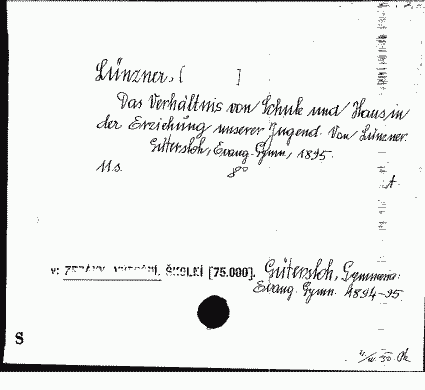 Lünzner, [ ]
Das Verhältnis von Schule und Haus in
der Erziehung unserer Jugend. Von Lünzner.
Gütersloh, Evang. Gymn., 1895.
11 s. 8°
A
v: ŠKOLEÍ [75.000]. Gütersloh, Gymnasium:
Evang. Gymn. 1894-95.
S